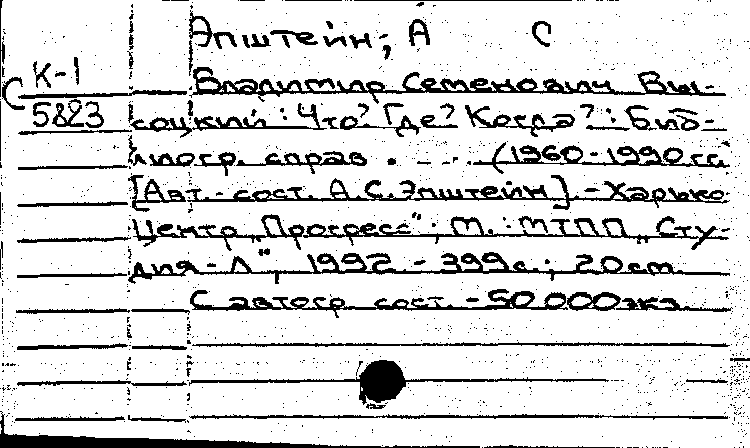 Эпштейн, А С
К-1
5823
Владимир Семенович Вы-
соцкий: Что? Где? Когда?: Биб-
лиогр. справ. (1960-1990 гг.
[Авт.-сост. А.С. Эпштейн]. - Харько
Центр „Прогресс"; М.: МТПП „Сту-
дия-Л", 1992. - 399 с.; 20 см.
С автогр. сост. - 50 000 экз.